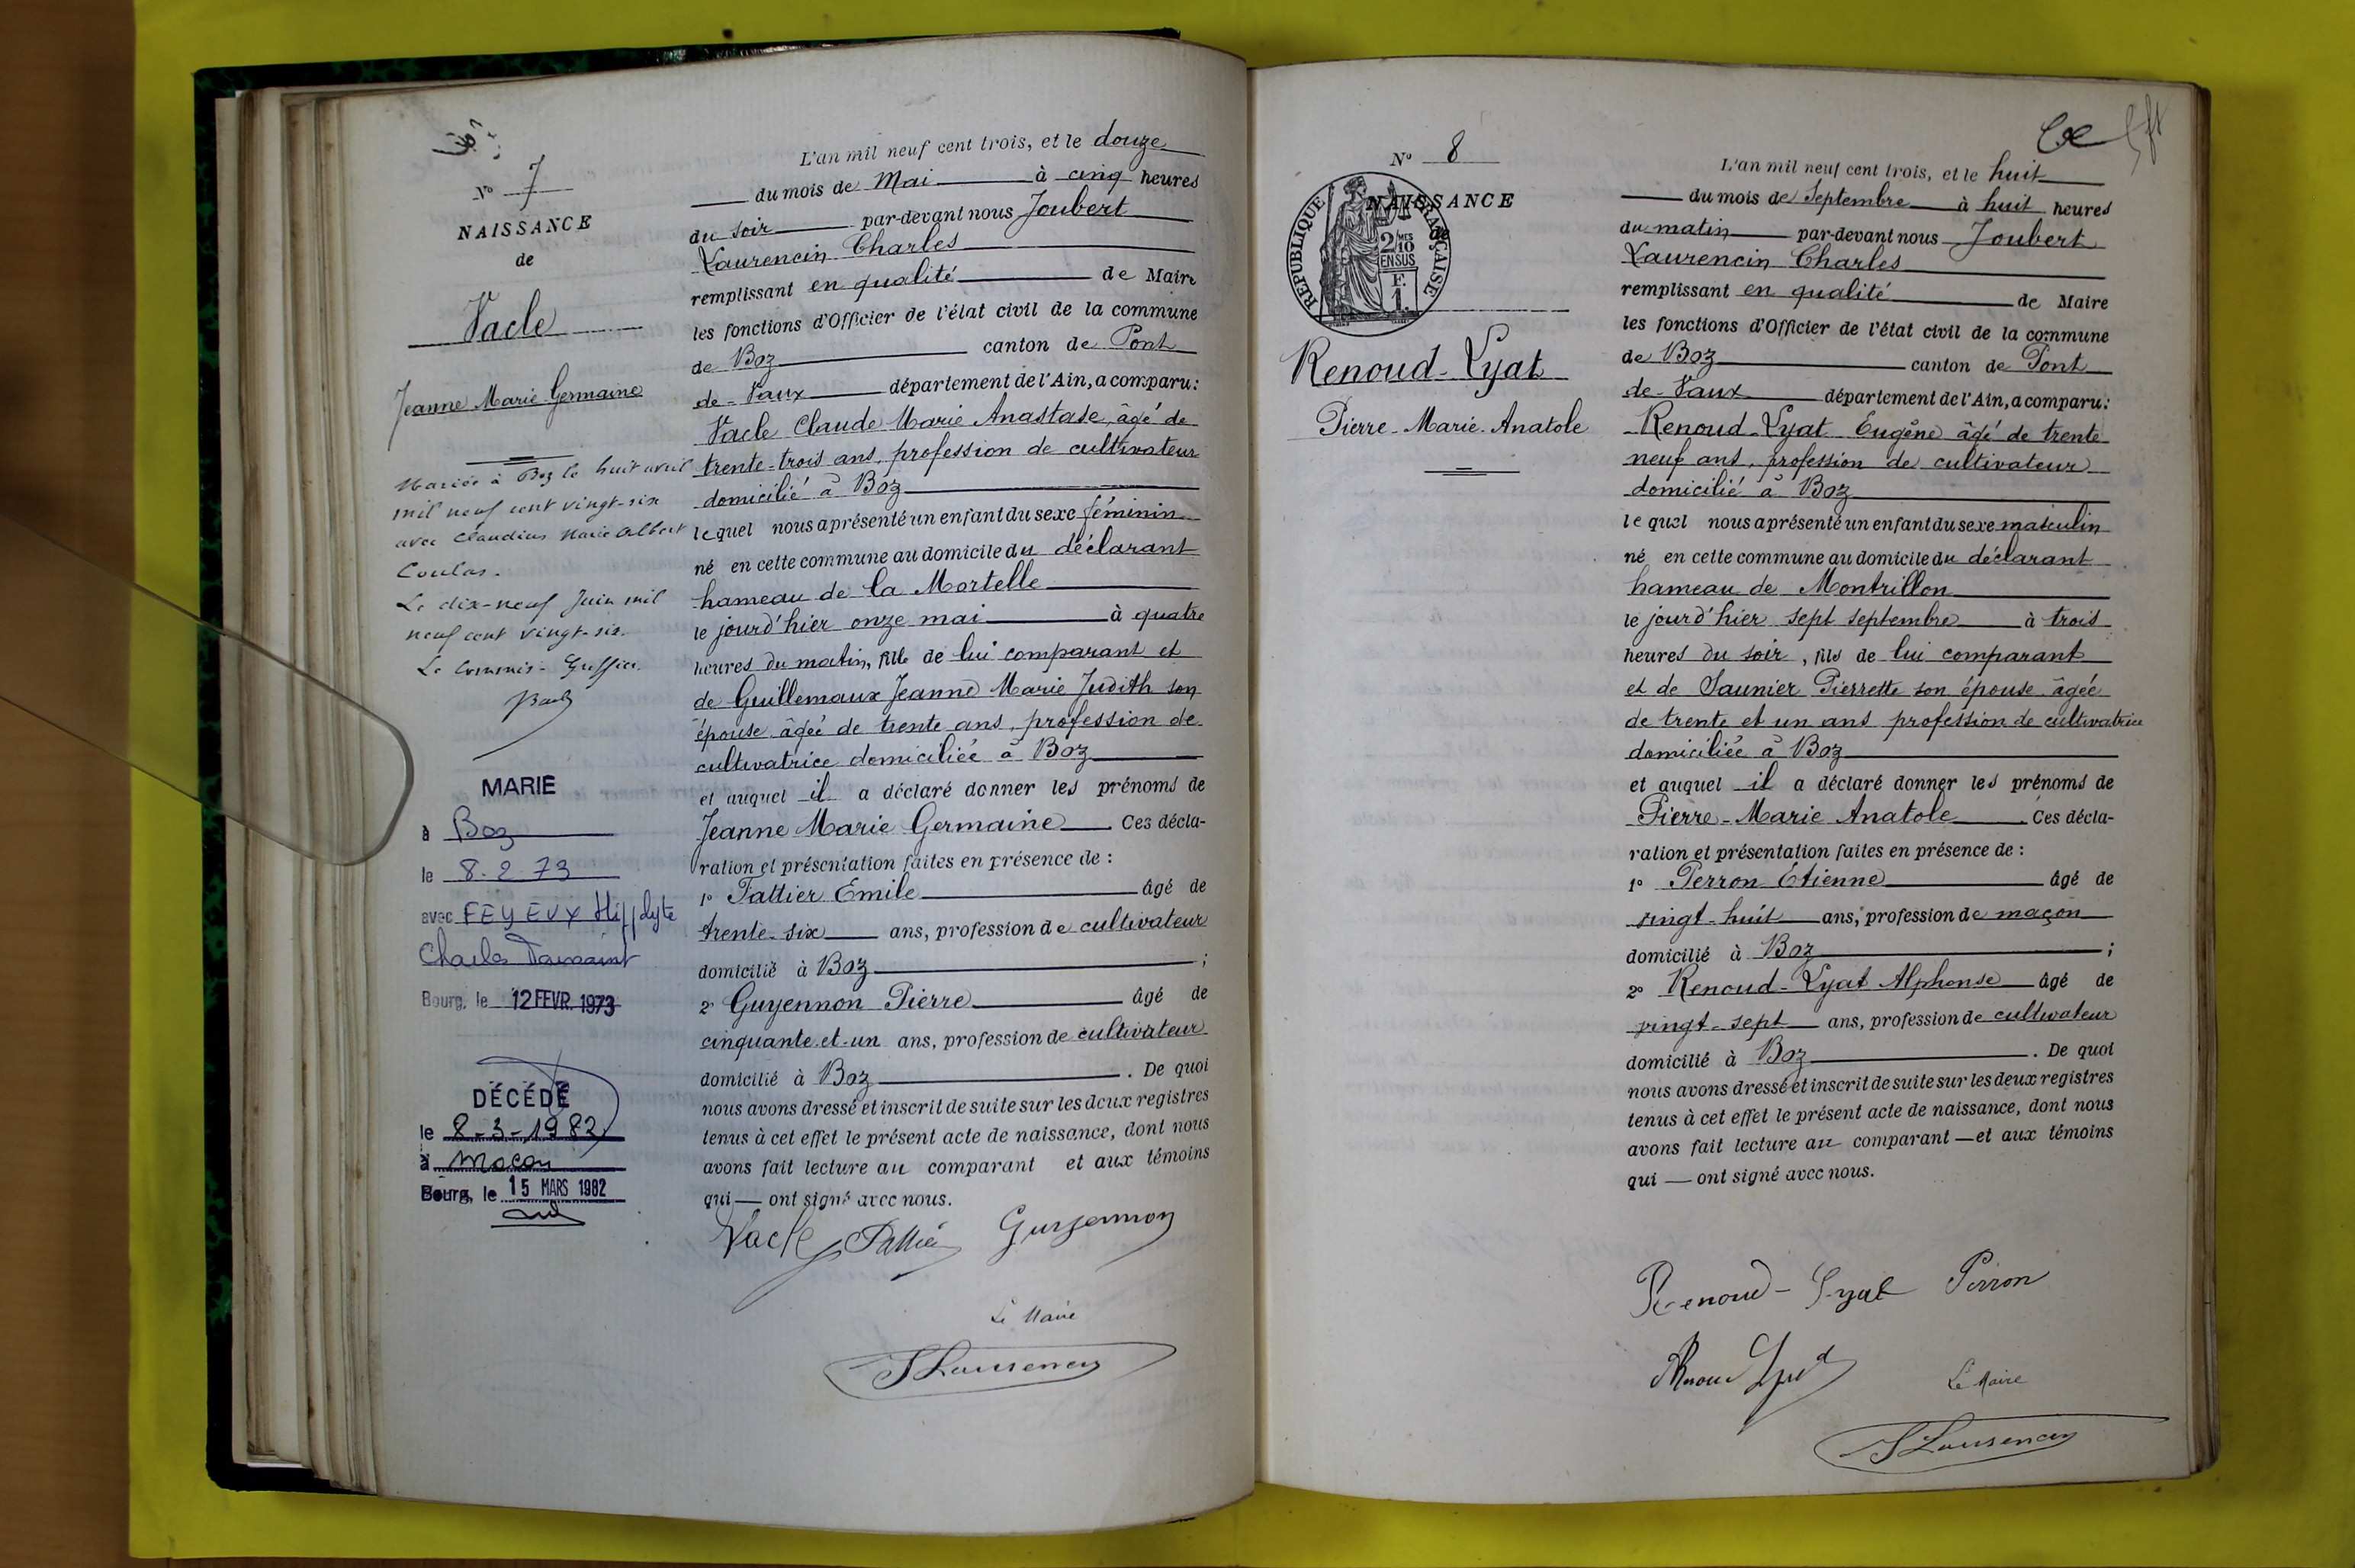 N° 7
NAISSANCE
de
Vacle
Jeanne Marie Germaine
Mariée à Boz le huit avril
mil neuf cent vingt-six
avec Claudius Marie Albert
Coulas.
Le dix-neuf Juin mil
neuf cent vingt-six.
Le Commis-Greffier
MARIE
à Boz
le 8.2.73
avec FEYEUX Hippolyte
Charles Toussaint
Bourg, le 12 FEVR. 1973
DÉCÉDÉ
le 8-3-1982
à Macon
Bourg, le 15 MARS 1982
L'an mil neuf cent trois, et le douze
du mois de Mai à cinq heures
du soir par-devant nous Joubert
Laurencin Charles
remplissant en qualité de Maire
les fonctions d'Officier de l'état civil de la commune
de Boz canton de Pont
de-Vaux département de l'Ain, a comparu:
Vacle Claude Marie Anastase, âgé de
trente-trois ans, profession de cultivateur
domicilié à Boz
lequel nous a présenté un enfant du sexe féminin
né en cette commune au domicile du déclarant
hameau de la Mortelle
le jourd'hier onze mai à quatre
heures du matin, fille de lui comparant et
de Guillemaux Jeanne Marie Judith son
épouse âgée de trente ans, profession de
cultivatrice domiciliée à Boz
et auquel il a déclaré donner les prénoms de
Jeanne Marie Germaine Ces décla-
ration et présentation faites en présence de :
1° Tattier Emile âgé de
trente-six ans, profession de cultivateur
domicilié à Boz ;
2° Guyennon Pierre âgé de
cinquante-et-un ans, profession de cultivateur
domicilié à Boz . De quoi
nous avons dressé et inscrit de suite sur les deux registres
tenus à cet effet le présent acte de naissance, dont nous
avons fait lecture au comparant et aux témoins
qui — ont signé avec nous.
Vacle Guyennon
Le Maire
J Laurencin
N° 8
NAISSANCE
de
RÉPUBLIQUE FRANÇAISE
2/10 MES
EN SUS
F.
1.
Renoud-Lyat
Pierre-Marie-Anatole
L'an mil neuf cent trois, et le huit
du mois de Septembre à huit heures
du matin par-devant nous Joubert
Laurencin Charles
remplissant en qualité de Maire
les fonctions d'Officier de l'état civil de la commune
de Boz canton de Pont
de-Vaux département de l'Ain, a comparu:
Renoud-Lyat Eugène âgé de trente
neuf ans, profession de cultivateur
domicilié à Boz
lequel nous a présenté un enfant du sexe masculin
né en cette commune au domicile du déclarant
hameau de Montrillon
le jourd'hier sept septembre à trois
heures du soir, fils de lui comparant
et de Saunier Pierrette son épouse âgée
de trente et un ans profession de cultivatrice
domiciliée à Boz
et auquel il a déclaré donner les prénoms de
Pierre-Marie Anatole . Ces décla-
ration et présentation faites en présence de :
1° Perron Étienne âgé de
vingt-huit ans, profession de maçon
domicilié à Boz ;
2° Renoud-Lyat Alphonse âgé de
vingt-sept ans, profession de cultivateur
domicilié à Boz . De quoi
nous avons dressé et inscrit de suite sur les deux registres
tenus à cet effet le présent acte de naissance, dont nous
avons fait lecture au comparant — et aux témoins
qui — ont signé avec nous.
Renoud-Lyat Perron
Renoud Lyat
Le Maire
J Laurencin